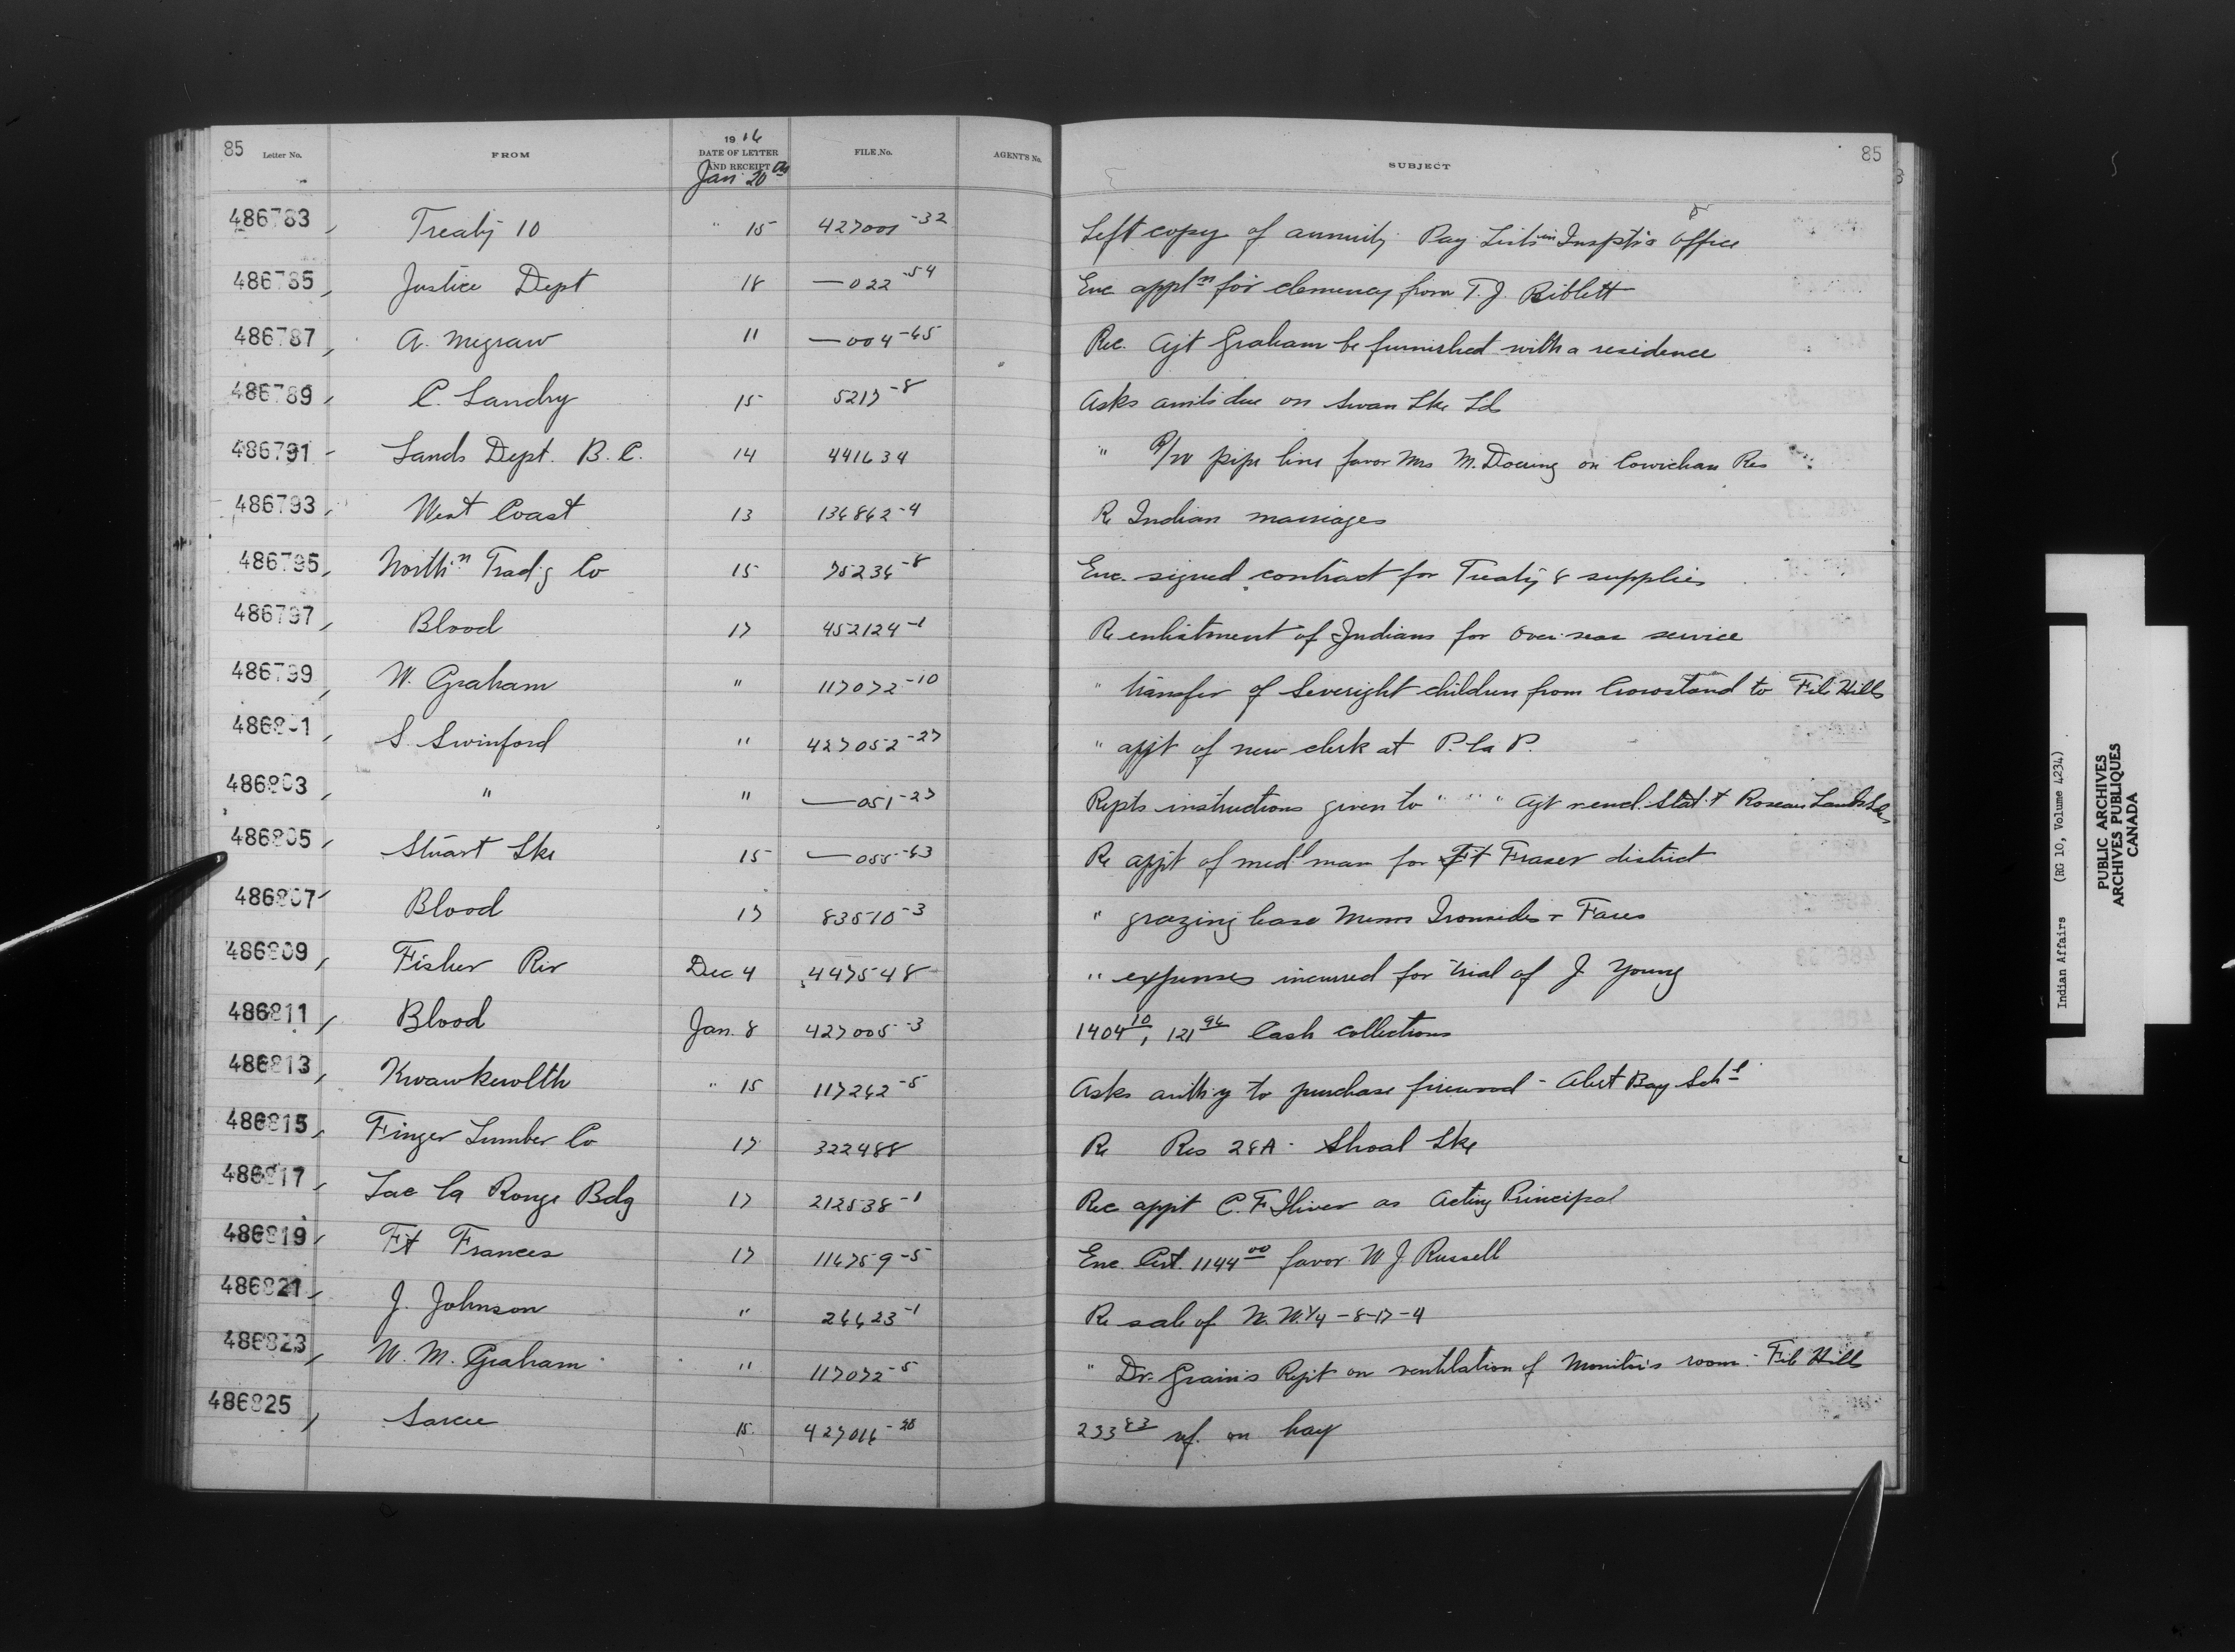 85 Letter No. FROM 1916 DATE OF LETTER AND RECEIPT FILE No. AGENT'S No. SUBJECT 85
Jan 20th
486783 Treaty 10 " 15 427001-32 Left copy of annuity Pay Lists in Inspts Office
486785 Justice Dept 18 —022-54 Enc appltn for clemency from T. J. Biblett
486787 A. Megraw 11 —004-65 Rec. Agt Graham be furnished with a residence
486789 C. Landry 15 5217-8 Asks amts due on Swan Lke Ld
486791 Lands Dept. B. C. 14 441634 " R/W pipe line favor Mrs M. Doering on Cowichan Res
486793 West Coast 13 136862-4 Re Indian marriages
486795 Northn Trad'g Co 15 75236-8 Enc. signed contract for Treaty 8 supplies
486797 Blood 17 452124-1 Re enlistment of Indians for Overseas service
486799 W. Graham " 117072-10 " transfer of Severight children from Crowstand to File Hills
486801 S. Swinford " 427052-27 " appt of new clerk at P. la P.
486803 " " —051-27 Repts instructions given to " " " Agt Roseau
486805 Stuart Lke 15 —055-63 Re appt of medl man for Ft Fraser district
486807 Blood 17 83510-3 " grazing lease Messrs Ironsides + Fares
486809 Fisher Riv Dec 4 447548 " expenses incurred for trial of J Young
486811 Blood Jan. 8 427005-3 1404 10, 121 96 Cash collections
486813 Kwawkewlth " 15 117262-5 Asks auth'y to purchase firewood - Alert Bay Schl
486815 Finger Lumber Co 17 322488 Re Res 28A - Shoal Lke
486817 Lac la Ronge Bdg 17 212538-1 Rec appt C. F. as Acting Principal
486819 Ft Frances 17 116759-5 Enc. Cert. 1144 00 favor W J Russell
486821 J. Johnson " 26623-1 Re sale of N. W. 1/4 - 8-17-4
486823 W. M. Graham " 117072-5 " Dr. Grain's Rept on ventilation of Monitor's room - File Hills
486825 Sarcee 15 427016-20 233 83 rf. on hay
Indian Affairs (RG 10, Volume 4234)
PUBLIC ARCHIVES
ARCHIVES PUBLIQUES
CANADA